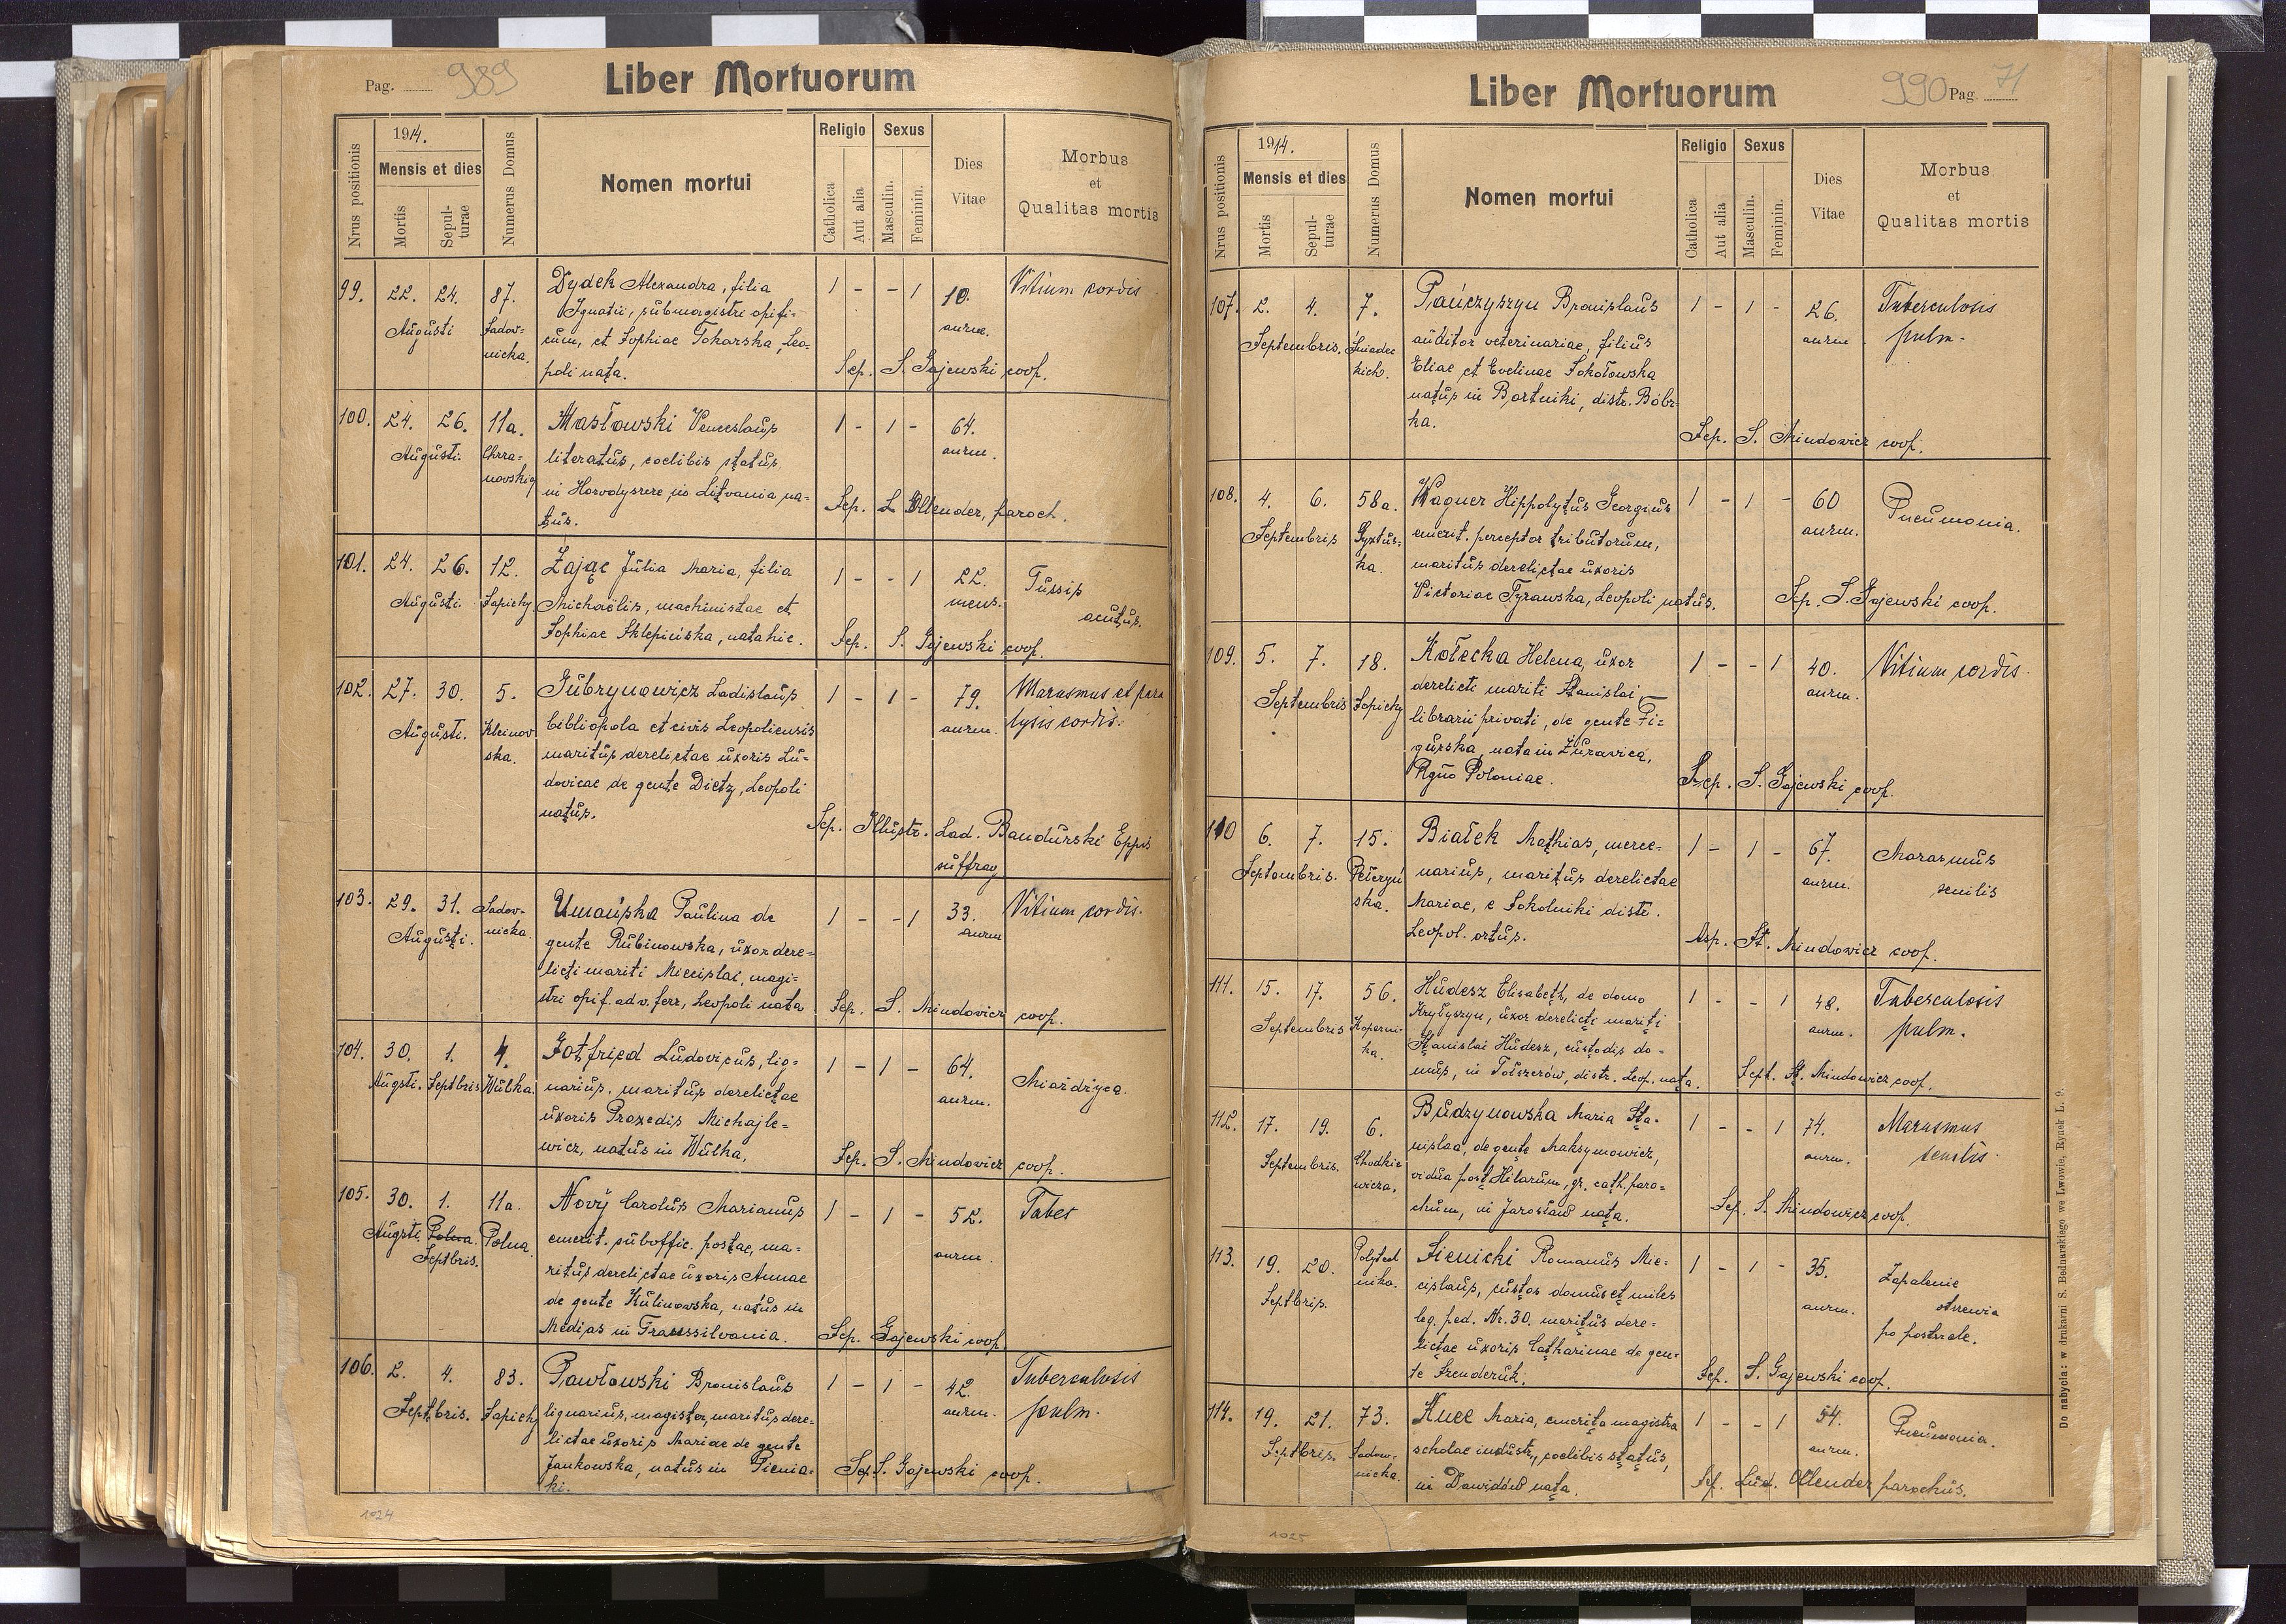 Pag. 989
Liber Mortuorum
Nrus positionis
1914.
Mensis et dies
Mortis
Sepulturae
Numerus Domus
Nomen mortui
Religio
Catholica
Aut alia
Sexus
Masculin.
Feminin.
Dies Vitae
Morbus
et
Qualitas mortis
99. 22. 24. 87. Dydek Alexandra, filia 1 - - 1 10. Vitium cordis
Augusti Sadov- Ignatii, submagistri opifi- annr.
nicka. cum, et Sophiae Tokarska, Leo-
poli nata. Sep. S. Gajewski coop.
100. 24. 26. 11a. Masłowski Venceslaus 1 - 1 - 64.
Augusti. Chrza- literatus, coelibis status, annr.
novskiej in Horodyszcze, in Litvania na- Sep. L. Ollender, paroch.
tus.
101. 24. 26. 12. Zając Julia Maria, filia 1 - - 1 22. Tussis
Augusti Sapiehy Michaëlis, machinistae et mens. acutus.
Sophiae Sklepińska, nata hic. Sep. S. Gajewski coop.
102. 27. 30. 5. Gubrynowicz Ladislaus 1 - 1 - 79. Marasmus et para
Augusti. Kleinov bibliopola et civis Leopoliensis annr. lysis cordis.
ska. maritus derelictae uxoris Lu-
dovicae de gente Dietz, Leopoli
natus. Sep. Illustr. Lad. Bandurski Epps
suffrag
103. 29. 31. Sadov- Umańska Paulina de 1 - - 1 33. Vitium cordis.
Augusti. nicka. gente Rubinowska, uxor dere- annr
licti mariti Miecislai, magi-
stri opif. ad v. ferr, Leopoli nata Sep. S. Mindowicz coop.
104. 30. 1. 4. Gotfried Ludovicus, lig- 1 - 1 - 64. Miażdżyca.
Augsti. Septbris Wulka. narius, maritus derelictae annr.
uxoris Praxedis Michajle-
wicz, natus in Wulka. Sep. S. Mindowicz coop.
105. 30. 1. 11a. Nový Carolus Marianus 1 - 1 - 52. Tabes
Augsti Polna Polna. emerit. suboffic. postae, ma- annr.
Septbris. ritus derelictae uxoris Annae
de gente Kulinowska, natus in
Medias in Transsilvania. Sep. Gajewski coop.
106. 2. 4. 83. Pawłowski Bronislaus 1 - 1 - 42. Tuberculosis
Septbris. Sapiehy lignarius, magister, maritus dere- annr. pulm.
lictae uxoris Mariae de gente
Jankowska, natus in Pienia- Sep S. Gajewski coop.
ki.
1024
Liber Mortuorum
990 Pag. 71
Nrus positionis
1914.
Mensis et dies
Mortis
Sepulturae
Numerus Domus
Nomen mortui
Religio
Catholica
Aut alia
Sexus
Masculin.
Feminin.
Dies Vitae
Morbus
et
Qualitas mortis
107. 2. 4. 7. Pańczyszyn Bronislaus 1 - 1 - 26. Tuberculosis
Septembris. Śniadec auditor veterinariae, filius annr. pulm.
kich. Eliae et Evelinae Sokołowska
natus in Bortniki, distr. Bóbr-
ka. Sep. S. Mindowicz coop.
108. 4. 6. 58a. Wagner Hippolytus Georgius 1 - 1 - 60 Pneumonia.
Septembris Syxtus- emerit. perceptor tributorum, annr.
ka. maritus derelictae uxoris
Victoriae Tyrawska, Leopoli natus. Sep. S. Gajewski coop.
109. 5. 7. 18. Kołecka Helena, uxor 1 - - 1 40. Vitium cordis.
Septembris Sapiehy derelicti mariti Stanislai annr.
librarii privati, de gente Fi-
gurska, nata in Żuravica,
Regno Poloniae. Sep. S. Gajewski coop.
110 6. 7. 15. Białek Mathias, merce- 1 - 1 - 67. Marasmus
Septembris. Pełczyń narius, maritus derelictae annr. senilis
ska. Mariae, e Sokolniki distr.
Leopol. ortus. Sep. St. Mindowicz coop.
111. 15. 17. 56. Hudesz Elisabeth, de domo 1 - - 1 48. Tuberculosis
Septembris Koperni- Kryłyszyn, uxor derelicti mariti annr. pulm.
ka. Stanislai Hudesz, custodis do-
mus, in Tołszczów, distr. Leop. nata. Sept. St. Mindowicz coop.
112. 17. 19. 6. Budzynowska Maria Sta- 1 - - 1 74. Marasmus
Septembris. Chodkie nislaa, de gente Maksymowicz, annr. senilis.
wicza. vidua post Hilarum, gr. cath. paro-
chum, in Jarosław nata. Sep. S. Mindowicz coop.
113. 19. 20. Polytech Sienicki Romanus Mie- 1 - 1 - 35. Zapalenie
Septbris. nika. cislaus, custos domus et miles annr. otrzewia
leg. ped. Nr. 30. maritus dere- po postrzale.
lictae uxoris Catharinae de gen-
te Frenderuk. Sep. S. Gajewski coop.
114. 19. 21. 73. Kucc Maria, emerita magistra 1 - - 1 54. Pneumonia.
Septbris. Sadow- scholae industr, coelibis status, annr.
nicka. in Dawidów nata. Sep. Lud. Ollender parochus.
Do nabycia: w drukarni S. Bednarskiego we Lwowie, Rynek L. 9.
1025